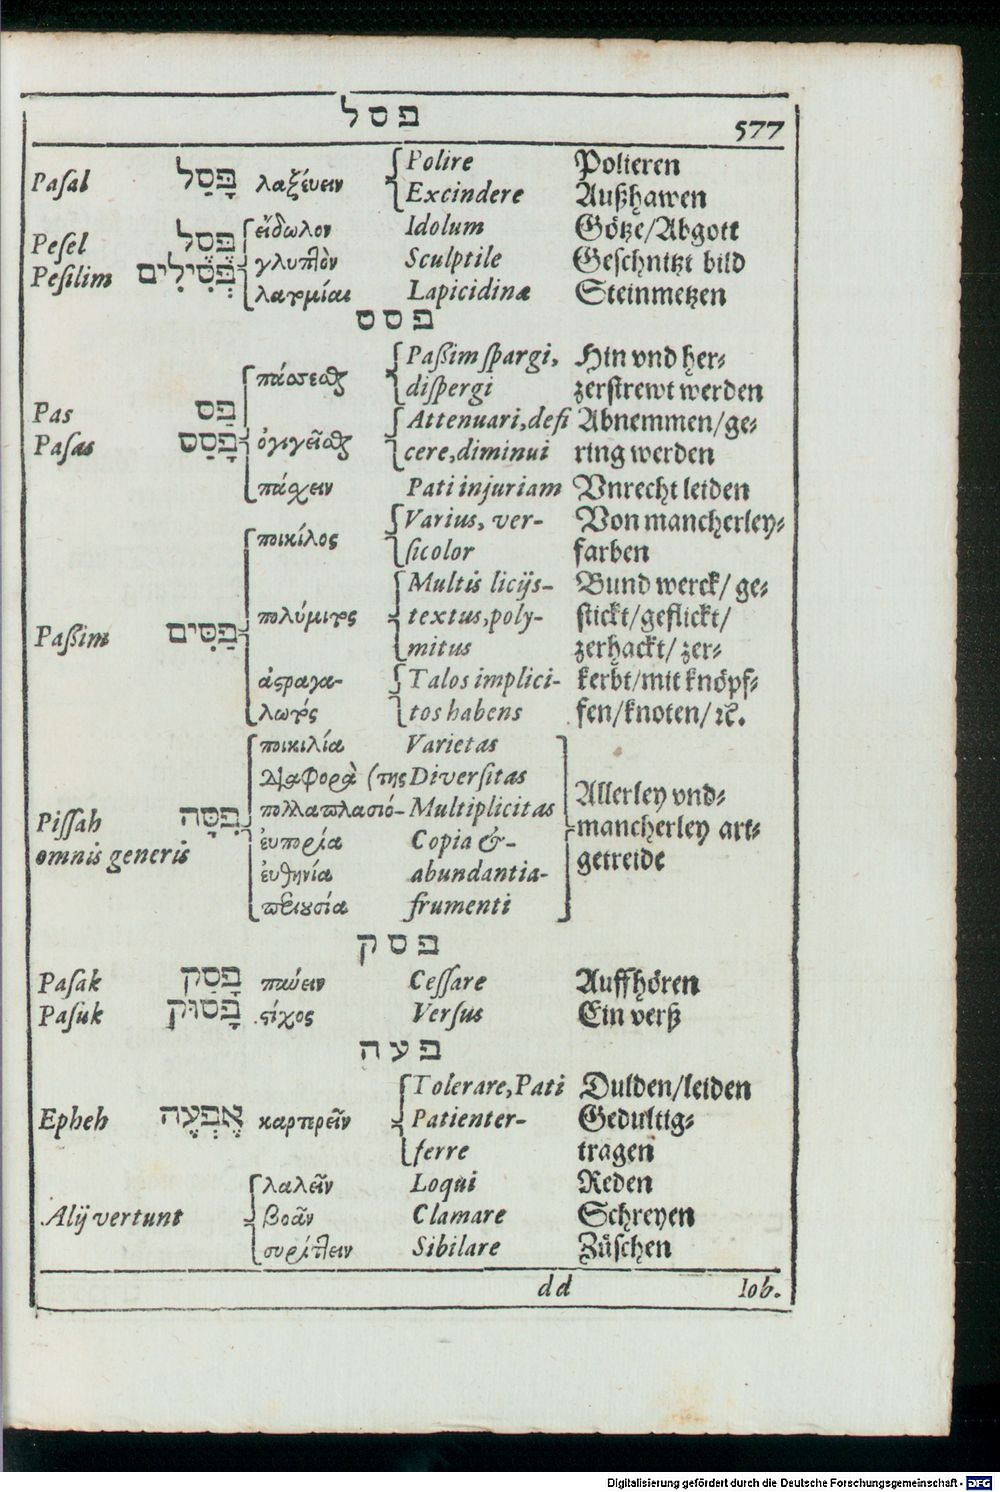 פסל
577
Paſal פָּסַל λαξέυειν Polire Polieren
Excindere Außhawen
Peſel פֶּסֶל εἴδωλον Idolum Götze/Abgott
Peſilim פְּסִילִים γλυπτὸν Sculptile Geſchnitzt bild
λατομίαι Lapicidinæ Steinmetzen
פסס
πάσσεσθαι Paßim ſpargi, Hin vnd her-
diſpergi zerſtrewt werden
Pas פַּס Attenuari, defi Abnemmen/ge-
Paſas פָּסַס ὀλιγεῖσθαι cere, diminui ring werden
πάσχειν Pati injuriam Vnrecht leiden
ποικίλος Varius, ver- Von mancherley-
ſicolor farben
Multis licijs- Bund werck/ ge-
πολύμιτος textus, poly- ſtickt/geflickt/
Paßim פַּסִּים mitus zerhackt/ zer-
ἀςραγα- Talos implici- kerbt/mit knöpf-
λωτός tos habens fen/knoten/ ꝛc.
ποικιλία Varietas
διαφορὰ (της Diverſitas
Piſſah פִּסָּה πολλαπλασιό- Multiplicitas Allerley vnd-
ἐυπορία Copia &- mancherley art-
omnis generis ἐυθηνία abundantia- getreide
περιουσία frumenti
פסק
Paſak פָּסַק παύειν Ceſſare Auffhören
Paſuk פָּסוּק ςίχος Verſus Ein verß
פעה
Tolerare, Pati Dulden/leiden
Epheh אֶפְעֶה καρτερεῖν Patienter- Gedultig-
ferre tragen
λαλεῖν Loqui Reden
Alij vertunt βοᾶν Clamare Schreyen
συρίττειν Sibilare Züſchen
dd Iob.
Digitalisierung gefördert durch die Deutsche Forschungsgemeinschaft - DFG